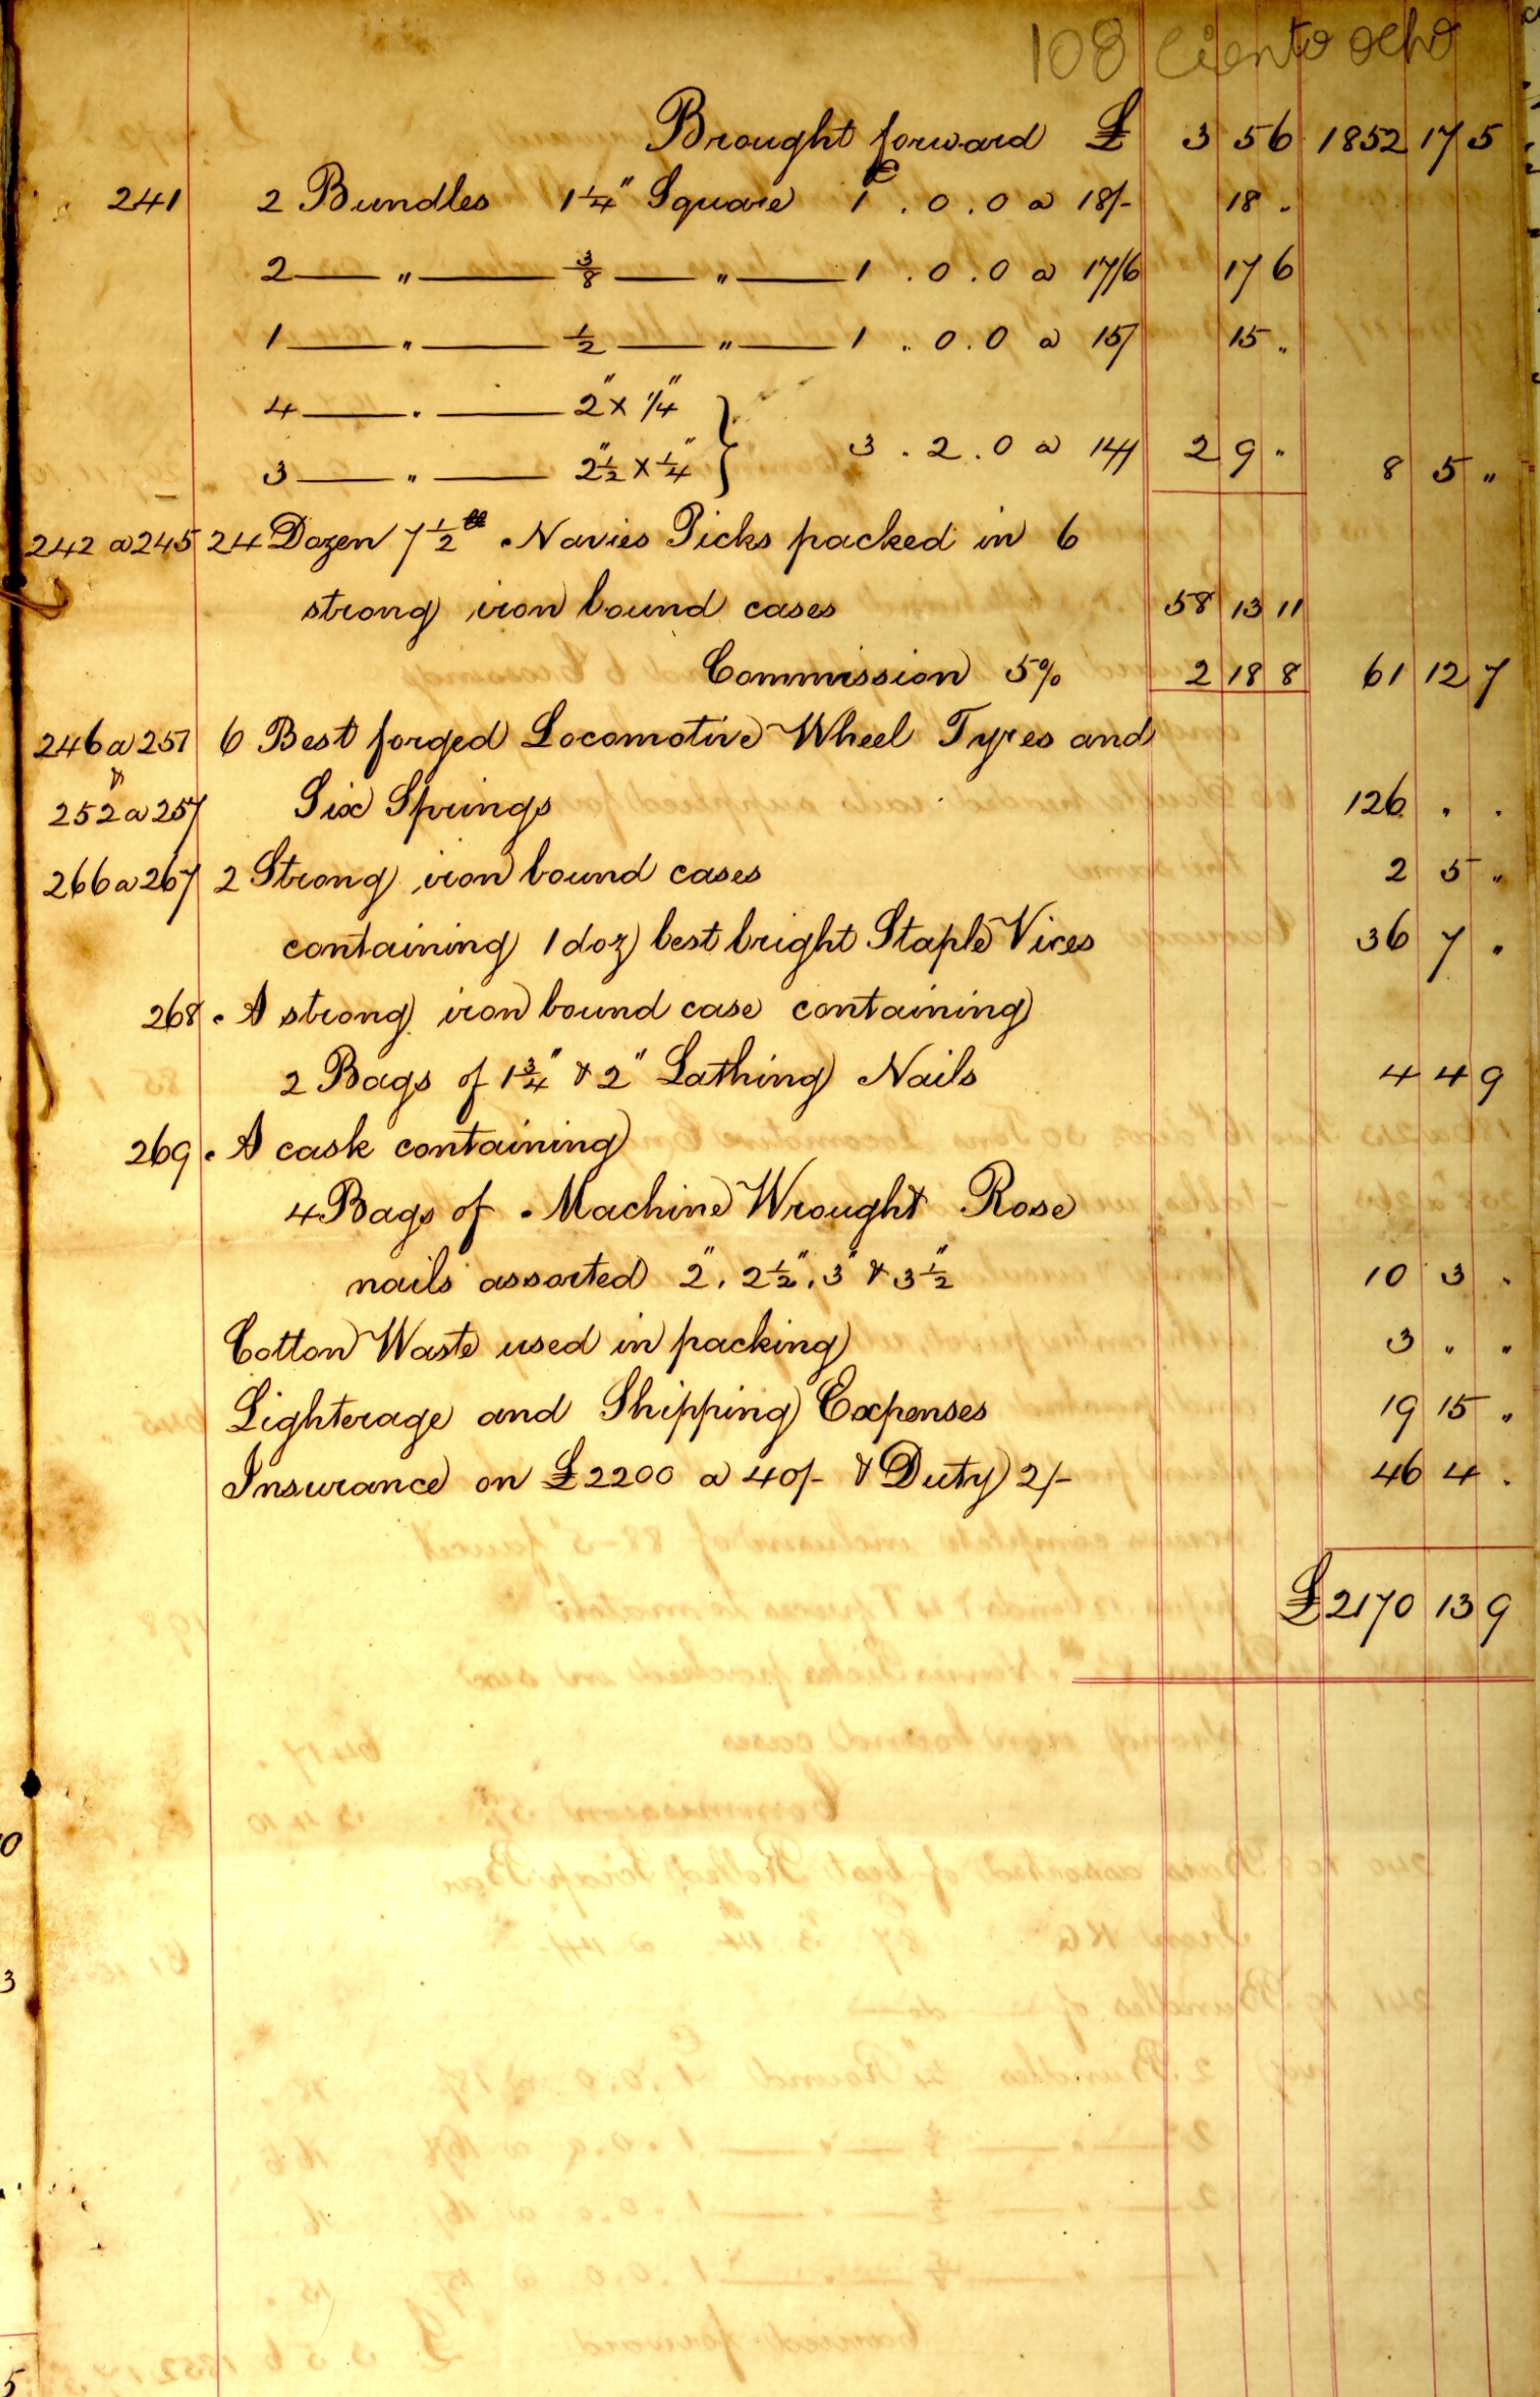 108 ciento ocho
Brought forward £ 3 5 6 1852 17 5
241 2 Bundles 1¼" Square 1 . 0 . 0 a 18/- 18 "
2 — " — 3/8 — " — 1 . 0 . 0 a 17/6 17 6
1 — " — ½ — " — 1 . 0 . 0 a 15/ 15 "
4 — " — 2" x ¼" }
3 — " — 2½" x ¼" } 3 . 2 . 0 a 14/ 2 9 " 8 5 "
242 a 245 24 Dozen 7½ lb Navies Picks packed in 6
strong iron bound cases 58 13 11
Commission 5% 2 18 8 61 12 7
246 a 251 6 Best forged Locomotive Wheel Tyres and
&
252 a 257 Six Springs 126 . .
266 a 267 2 Strong iron bound cases 2 5 "
containing 1 doz best bright Staple Vices 36 7 "
268 . A strong iron bound case containing
2 Bags of 1¾" & 2" Lathing Nails 4 4 9
269 . A cask containing
4 Bags of Machine Wrought Rose
nails assorted 2", 2½", 3" & 3½" 10 3 "
Cotton Waste used in packing 3 " "
Lighterage and Shipping Expenses 19 15 "
Insurance on £2200 a 40/- & Duty 2/- 46 4 .
£2170 13 9